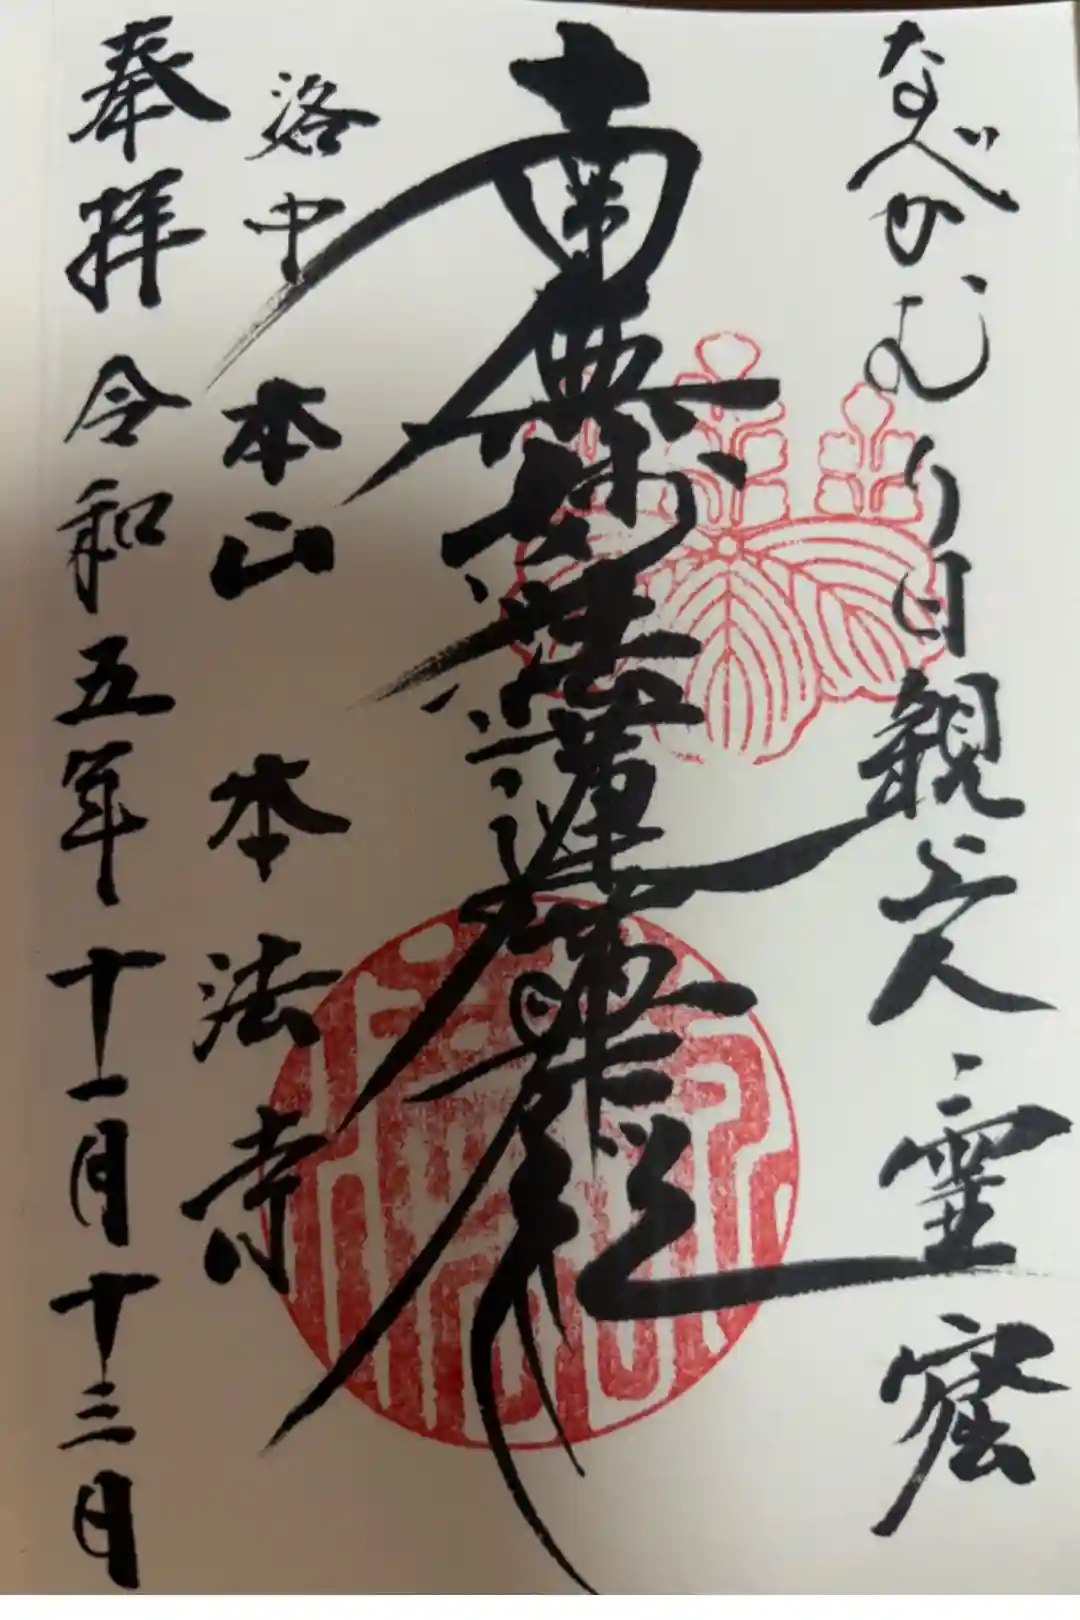 なべかむり日親上人霊窟
南無妙法蓮華経
洛中 本山 本法寺
奉拝 令和五年十一月十三日